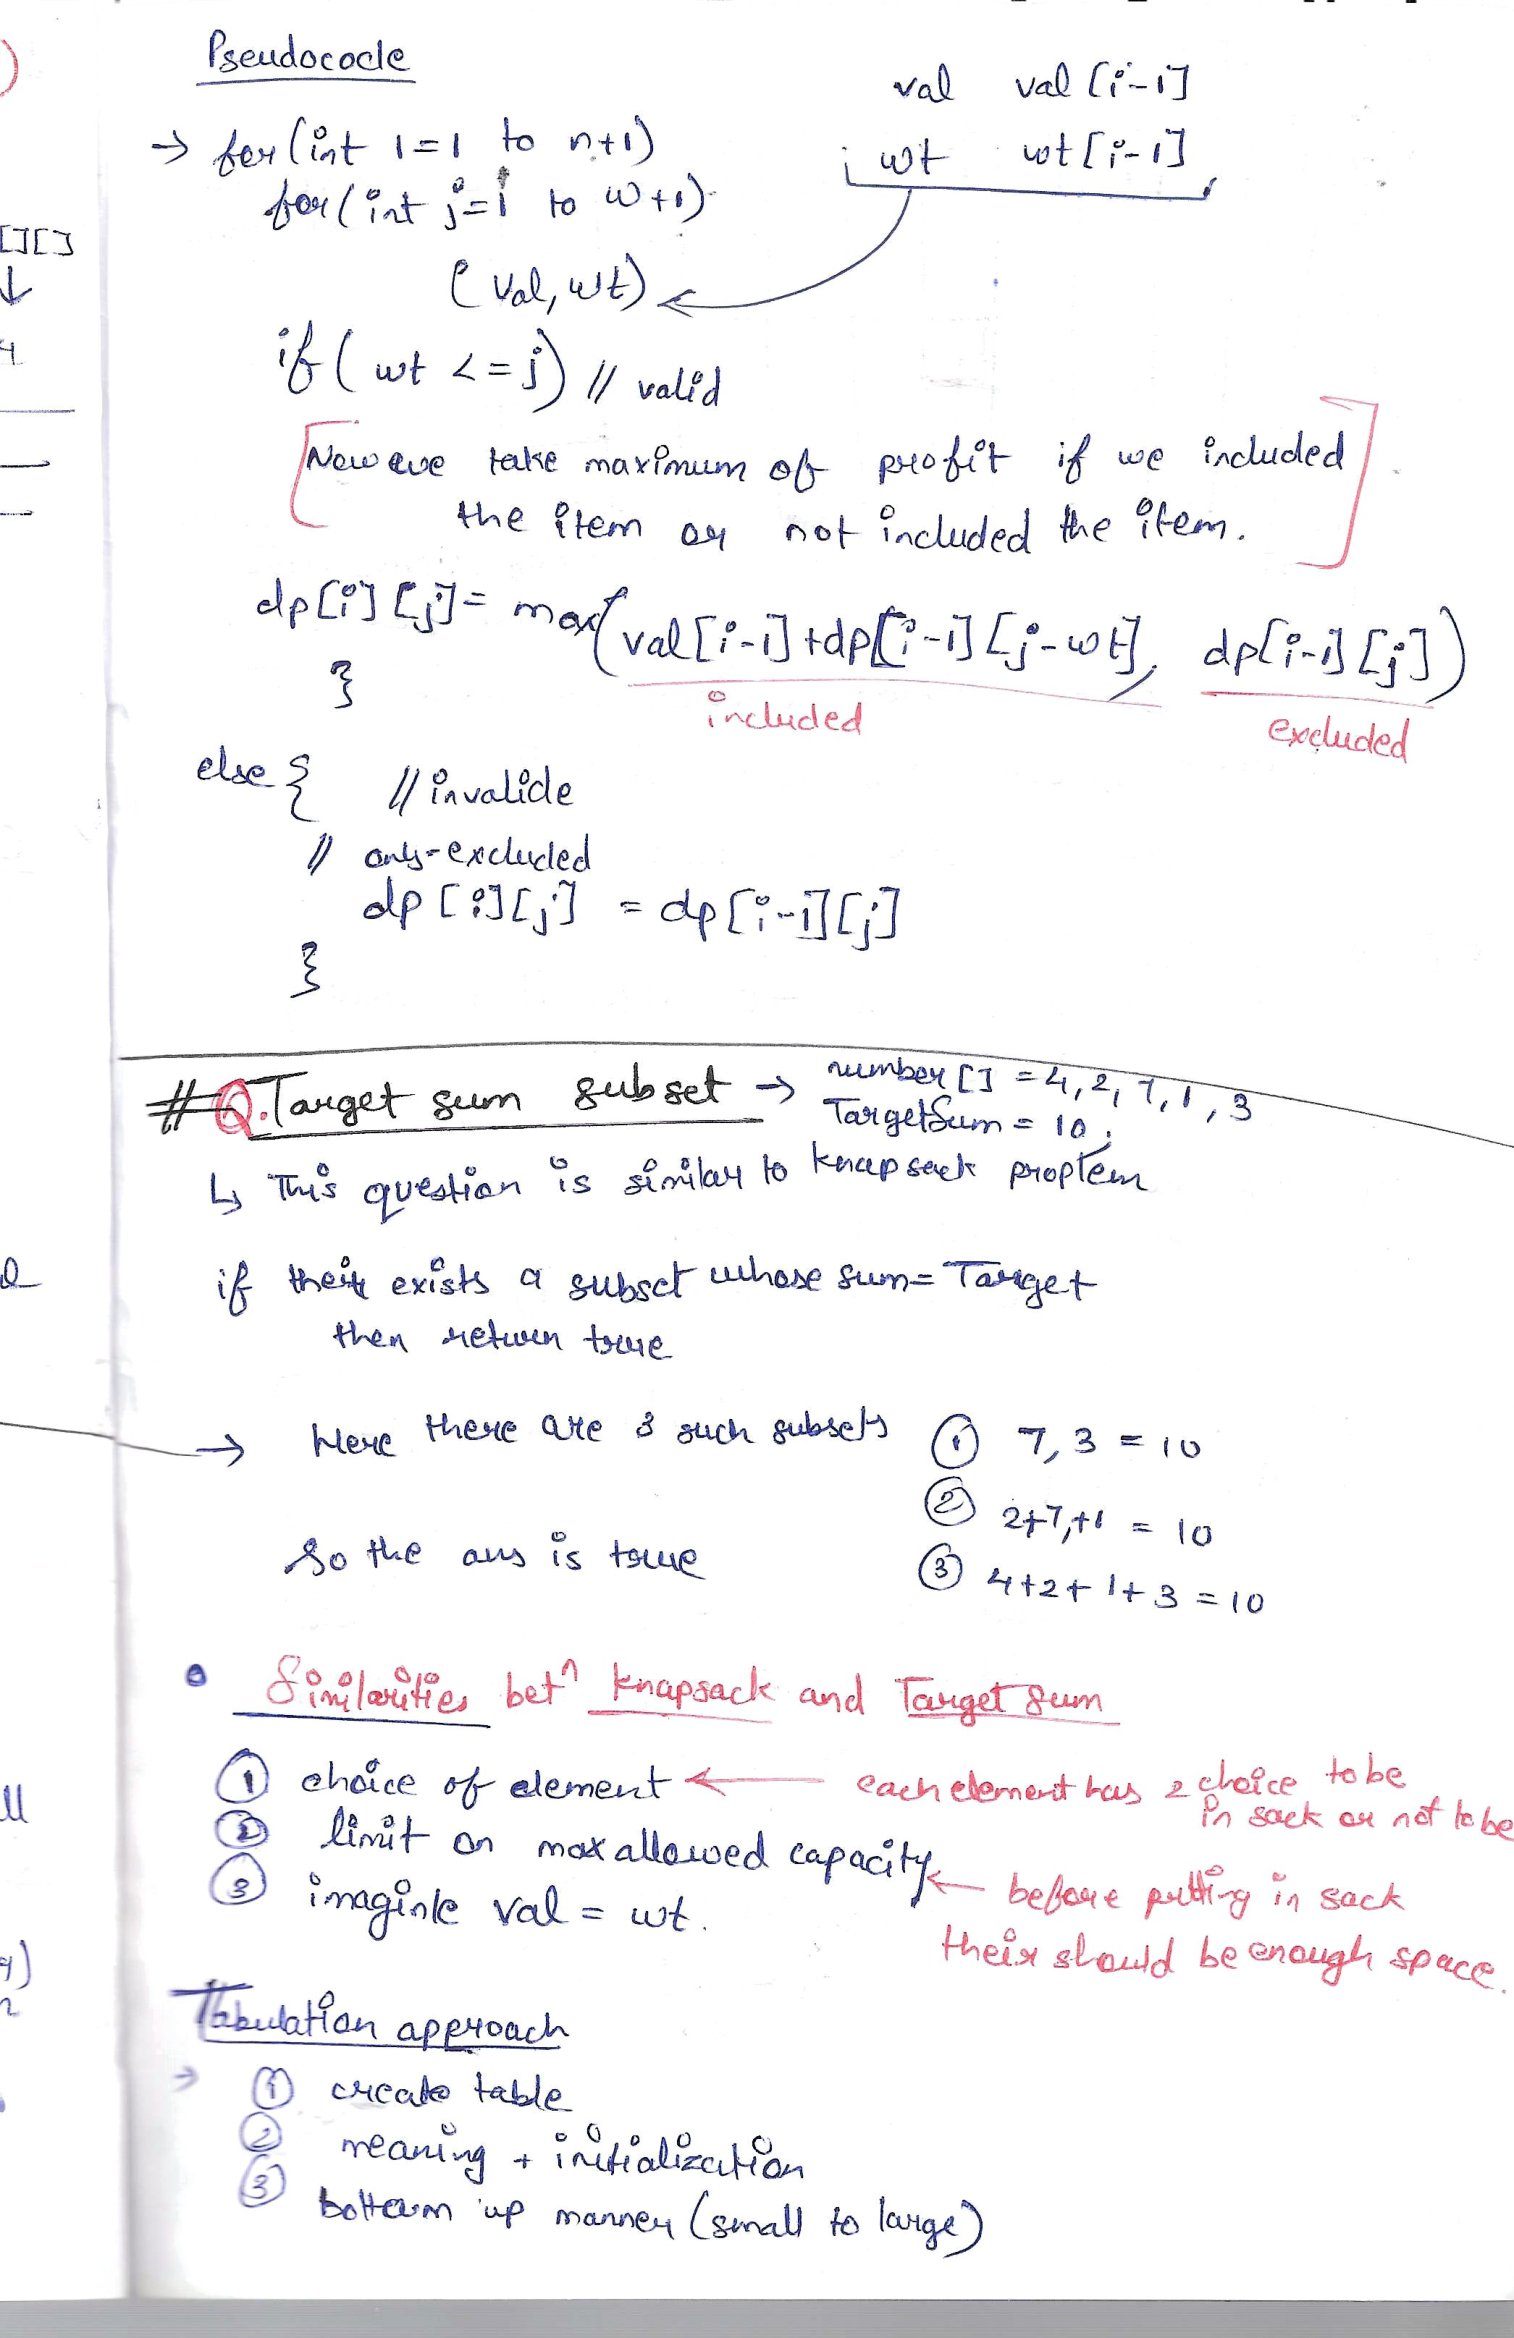 Pseudocode
val val[i-1]
wt wt[i-1]
→ for(int i=1 to n+1)
for(int j=1 to w+1)
(val, wt)
if( wt <= j) // valid
Now we take maximum of profit if we included
the item or not included the item.
dp[i][j]= max(val[i-1]+dp[i-1][j-wt], dp[i-1][j])
included
excluded
}
else { // invalide
// only-excluded
dp[i][j] = dp[i-1][j]
}
# Q. Target sum subset → number[] = 4, 2, 7, 1, 3
TargetSum = 10;
↳ This question is similar to knapsack proplem
if their exists a subset whose sum = Target
then return true
→ Here there are 3 such subsets ① 7, 3 = 10
② 2+7,+1 = 10
So the ans is true
③ 4+2+1+3 = 10
• Similarities betn knapsack and Target sum
① choice of element ← each element has 2 choice to be
in sack or not to be
② limit on max allowed capacity ← before putting in sack
their should be enough space.
③ imagine val = wt.
Tabulation approach
→ ① create table
② meaning + initialization
③ bottom up manner (small to large)